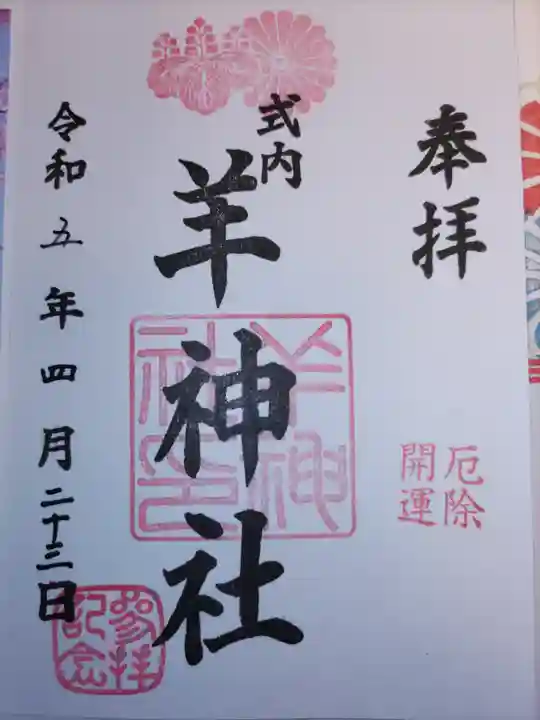 奉拝
厄除
開運
式内
羊神社
羊神社印
令和五年四月二十三日
参拝
記念